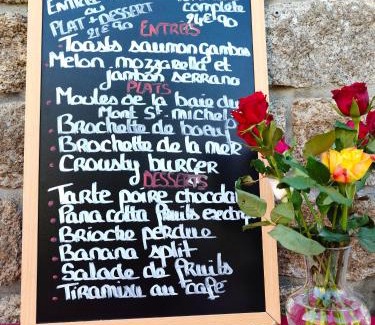 ENTRÉE
ou
PLAT + DESSERT
21€90
complète
24€90
ENTRÉES
Toasts saumon Gambas
Melon mozzarella et
jambon serrano
PLATS
Moules de la baie du
Mont St-michel
Brochette de boeuf
Brochette de la mer
Crousty burger
DESSERTS
Tarte poire chocolat
Pana cotta fruits exotiq
Brioche perdue
Banana split
Salade de fruits
Tiramisu au café